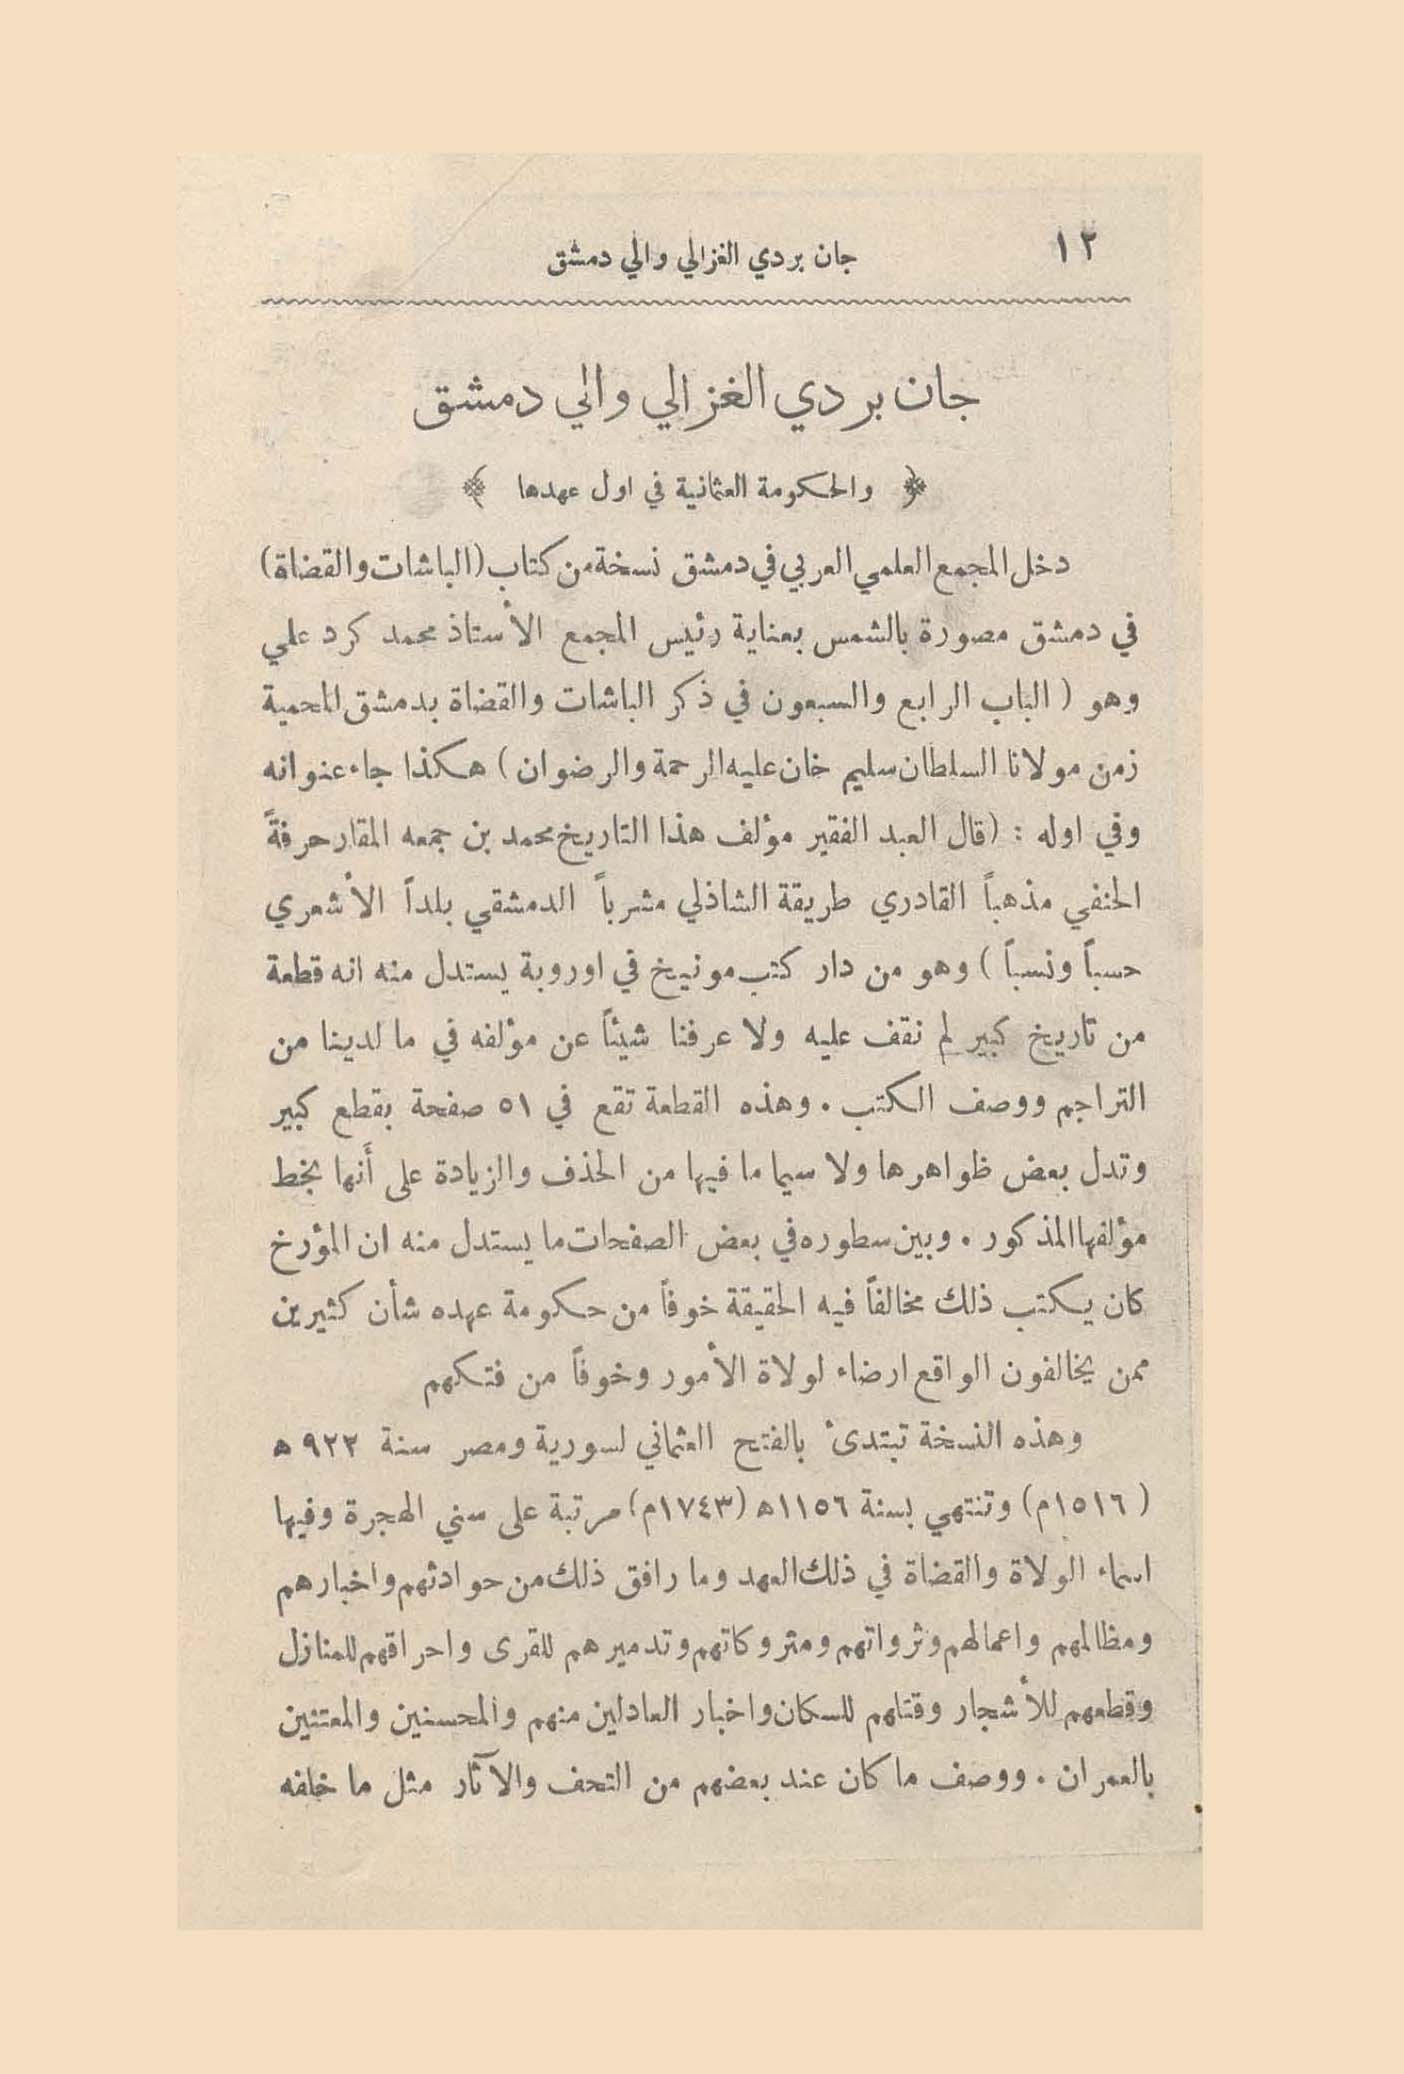 ١٢
جان بردي الغزالي والي دمشق
جان بردي الغزالي والي دمشق
﴿ والحكومة العثمانية في اول عهدها ﴾
دخل المجمع العلمي العربي في دمشق نسخة من كتاب (الباشات والقضاة)
في دمشق مصورة بالشمس بعناية رئيس المجمع الأستاذ محمد كرد علي
وهو ( الباب الرابع والسبعون في ذكر الباشات والقضاة بدمشق المحمية
زمن مولانا السلطان سليم خان عليه الرحمة والرضوان ) هكذا جاء عنوانه
وفي اوله : (قال العبد الفقير مؤلف هذا التاريخ محمد بن جمعه المقار حرفةً
الحنفي مذهباً القادري طريقة الشاذلي مشرباً الدمشقي بلداً الأشعري
حسباً ونسباً ) وهو من دار كتب مونيخ في اوروبة يستدل منه انه قطعة
من تاريخ كبير لم نقف عليه ولا عرفنا شيئاً عن مؤلفه في ما لدينا من
التراجم ووصف الكتب . وهذه القطعة تقع في ٥١ صفحة بقطع كبير
وتدل بعض ظواهرها ولا سيما ما فيها من الحذف والزيادة على أنها بخط
مؤلفها المذكور . وبين سطوره في بعض الصفحات ما يستدل منه ان المؤرخ
كان يكتب ذلك مخالفاً فيه الحقيقة خوفاً من حكومة عهده شأن كثيرين
ممن يخالفون الواقع ارضاء لولاة الأمور وخوفاً من فتكهم
وهذه النسخة تبتدئ بالفتح العثماني لسورية ومصر سنة ٩٢٢ ه
( ١٥١٦م) وتنتهي بسنة ١١٥٦ ه (١٧٤٣م) مرتبة على سني الهجرة وفيها
اسماء الولاة والقضاة في ذلك العهد وما رافق ذلك من حوادثهم واخبارهم
ومظالمهم واعمالهم وثرواتهم ومتروكاتهم وتدميرهم للقرى واحراقهم للمنازل
وقطعهم للأشجار وقتلهم للسكان واخبار العادلين منهم والمحسنين والمعتنين
بالعمران . ووصف ما كان عند بعضهم من التحف والآثار مثل ما خلفه